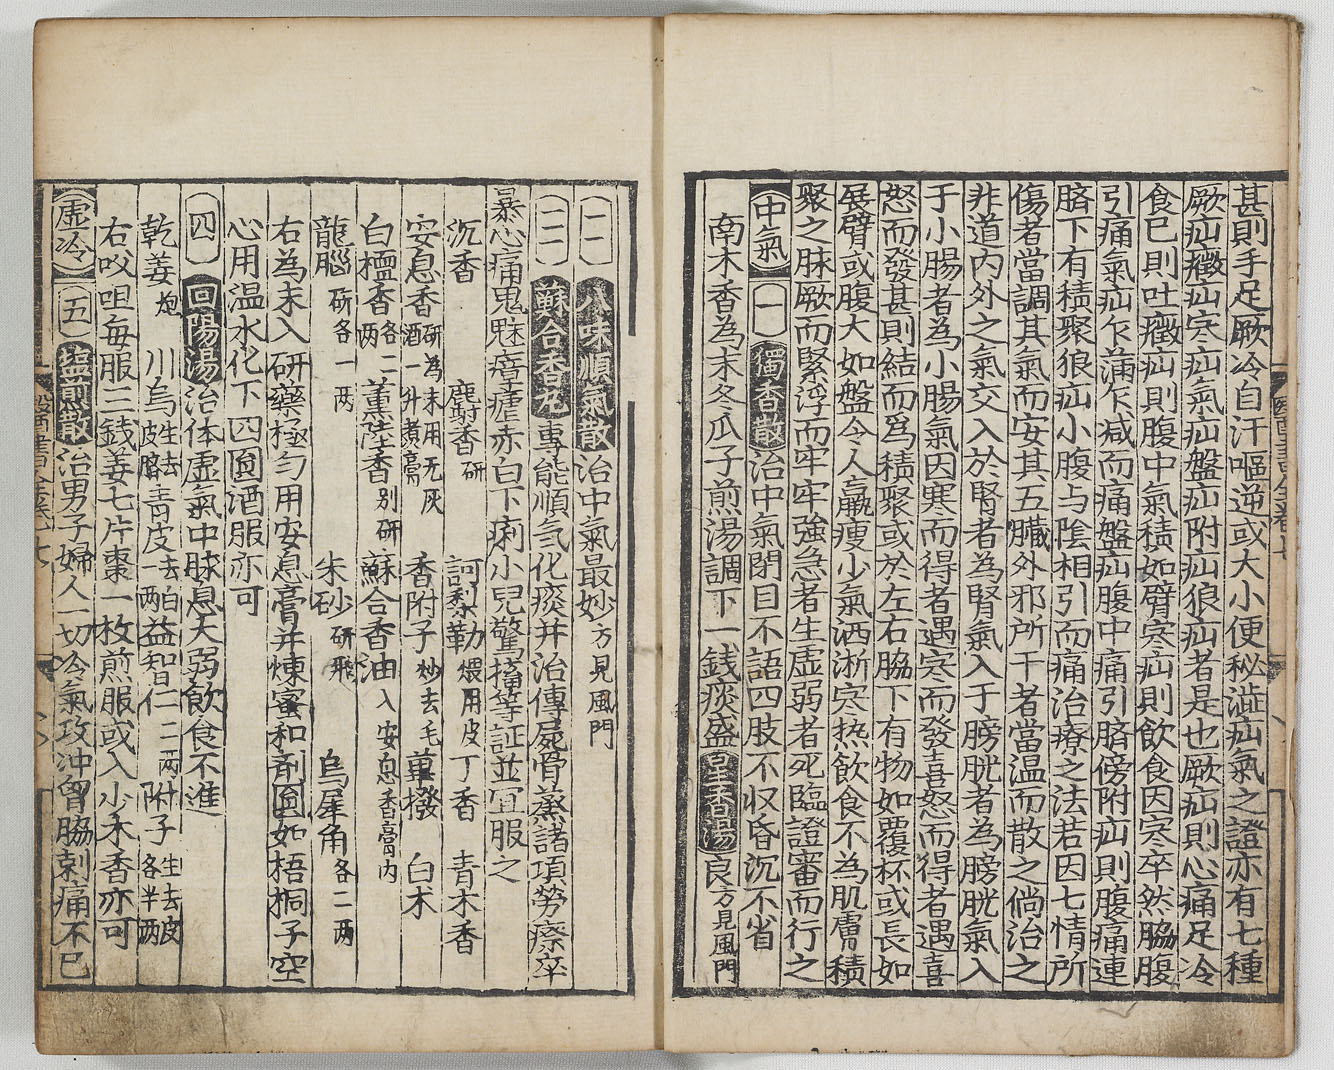 甚則手足厥冷自汗嘔逆或大小便秘澁疝氣之證亦有七種
厥疝癥疝寒疝氣疝盤疝附疝狼疝者是也厥疝則心痛足冷
食已則吐癥疝則腹中氣積如臂寒疝則飲食因寒卒然脇腹
引痛氣疝乍滿乍减而痛盤疝腹中痛引臍傍附疝則腹痛連
臍下有積聚狼疝小腹与陰相引而痛治療之法若因七情所
傷者當調其氣而安其五臟外邪所干者當温而散之倘治之
非道内外之氣交入於腎者為腎氣入于膀胱者為膀胱氣入
于小腸者為小腸氣因寒而得者遇寒而發喜怒而得者遇喜
怒而發甚則結而爲積聚或於左右脇下有物如覆杯或長如
展臂或腹大如盤令人羸瘦少氣洒淅寒热飲食不為肌膚積
聚之脉厥而緊浮而牢牢強急者生虛弱者死臨證審而行之
中氣 一 獨香散 治中氣閉目不語四肢不収昏沉不省
南木香為末冬瓜子煎湯調下一銭痰盛星香湯良方見風門
二 八味順氣散 治中氣最妙方見風門
三 蘇合香丸 專能順气化痰并治傳屍骨蒸諸項勞瘵卒
暴心痛鬼魅瘴瘧赤白下痢小兒驚搐等証並宜服之
沉香 麝香研 訶梨勒煨用皮 丁香 青木香
安息香研為末用无灰酒一升煮膏 香附子炒去毛 蓽撥 白木
白檀香各二两 薰陸香别研 蘇合香油入安息香膏内
龍腦研各一两 朱砂研飛 烏犀角各二两
右為末入研藥極匀用安息膏并煉蜜和剤圓如梧桐子空
心用温水化下四圓酒服亦可
四 回陽湯 治体虛氣中脉息大弱飲食不進
乾姜炮 川烏生去皮臍 青皮去白一两 益智仁二两 附子生去皮各半两
右㕮咀每服三銭姜七片棗一枚煎服或入少木香亦可
虛冷 五 塩煎散 治男子婦人一切冷氣攻冲胷脇刺痛不已